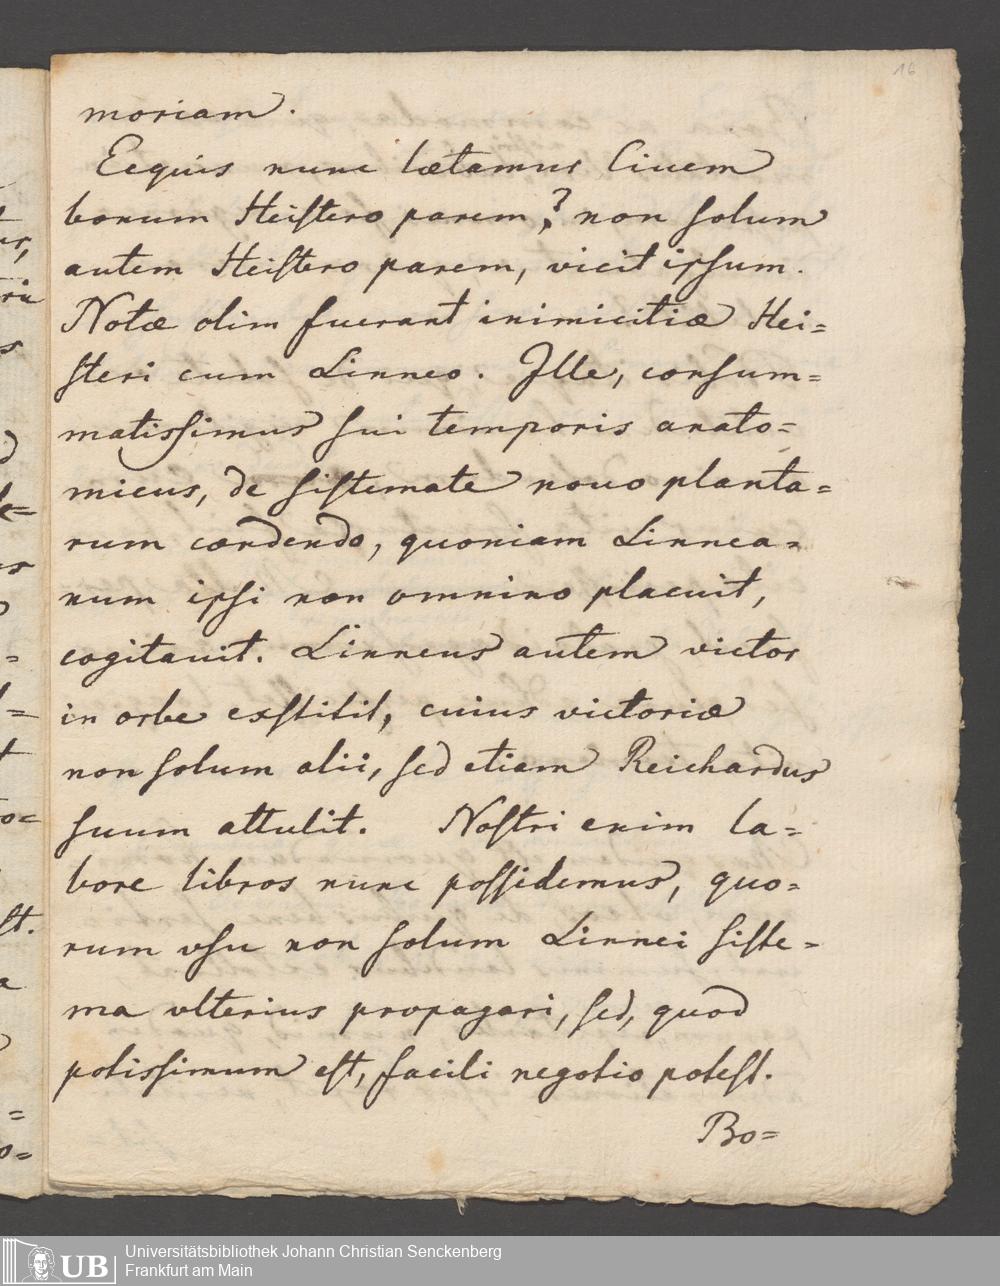 16
moriam.
Ecquis nunc lætamus Civem
bonum Heistero parem? non solum
autem Heistero parem, vicit ipsum.
Notæ olim fuerant inimicitiæ Hei=
steri cum Linneo. Ille, consum=
matissimus sui temporis anato=
micus, de sistemate novo planta=
rum condendo, quoniam Linnea=
num ipsi non omnino placuit,
cogitauit. Linneus autem victor
in orbe exstitit, cuius victoriæ
non solum alii, sed etiam Reichardus
suum attulit. Nostri enim la=
bore libros nunc possidemus, quo=
rum vsu non solum Linnei siste=
ma vlterius propagari, sed, quod
potissimum est, facili negotio potest.
Bo=
UB
Universitätsbibliothek Johann Christian Senckenberg
Frankfurt am Main